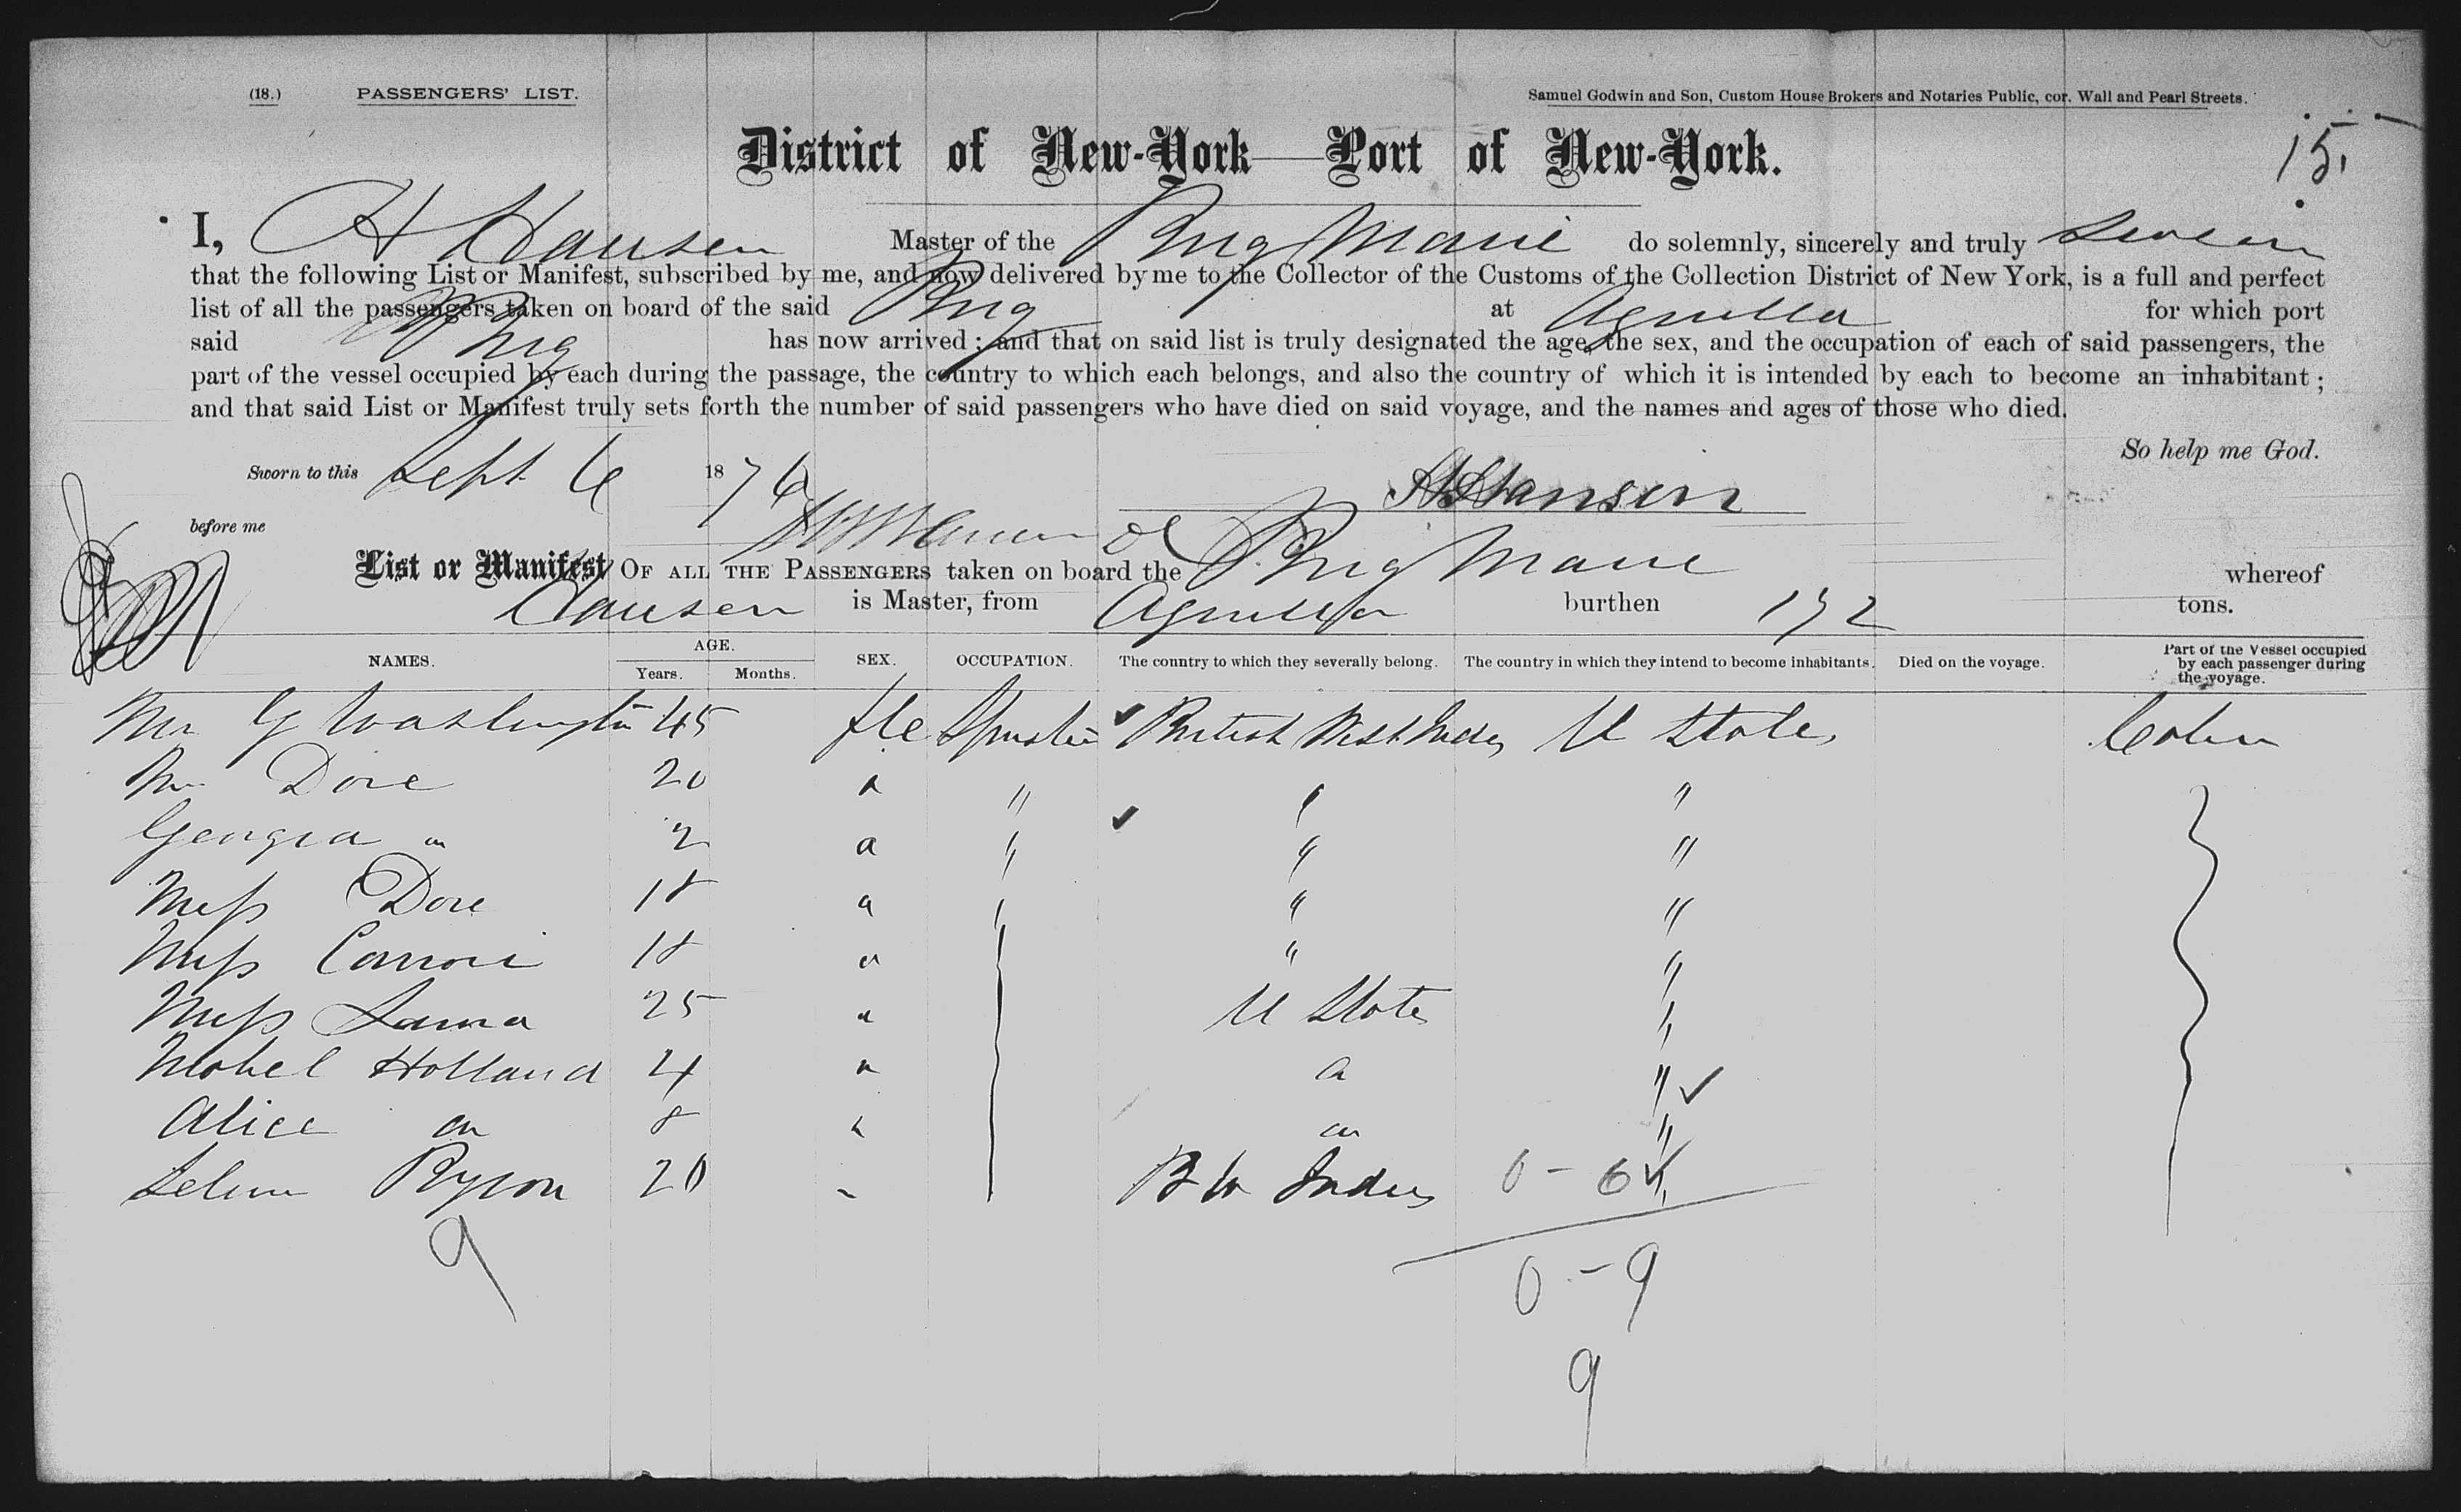 (18.) PASSENGERS' LIST. Samuel Godwin and Son, Custom House Brokers and Notaries Public, cor. Wall and Pearl Streets.
15.
District of New-York—Port of New-York.
I, H Hansen Master of the Brig Marie do solemnly, sincerely and truly swear
that the following List or Manifest, subscribed by me, and now delivered by me to the Collector of the Customs of the Collection District of New York, is a full and perfect
list of all the passengers taken on board of the said Brig at for which port
said Brig has now arrived; and that on said list is truly designated the age, the sex, and the occupation of each of said passengers, the
part of the vessel occupied by each during the passage, the country to which each belongs, and also the country of which it is intended by each to become an inhabitant;
and that said List or Manifest truly sets forth the number of said passengers who have died on said voyage, and the names and ages of those who died.
So help me God.
Sworn to this Sept 6 1876 H Hansen
before me
List or Manifest OF ALL THE PASSENGERS taken on board the Brig Marie whereof
Hansen is Master, from burthen 172 tons.
NAMES. AGE. Years. Months. SEX. OCCUPATION. The country to which they severally belong. The country in which they intend to become inhabitants. Died on the voyage. Part of the Vessel occupied by each passenger during the voyage.
G Washington 45 fle British West Indies U States Cabin
Dore 20 " " "
Georgia " 2 " " " "
Miss Dore 18 " " "
Miss 18 " " "
Miss 25 " U States "
Mabel Holland 4 " " "
Alice " 8 " " "
20 " B W Indies 0 - 6
9
0 - 9
9